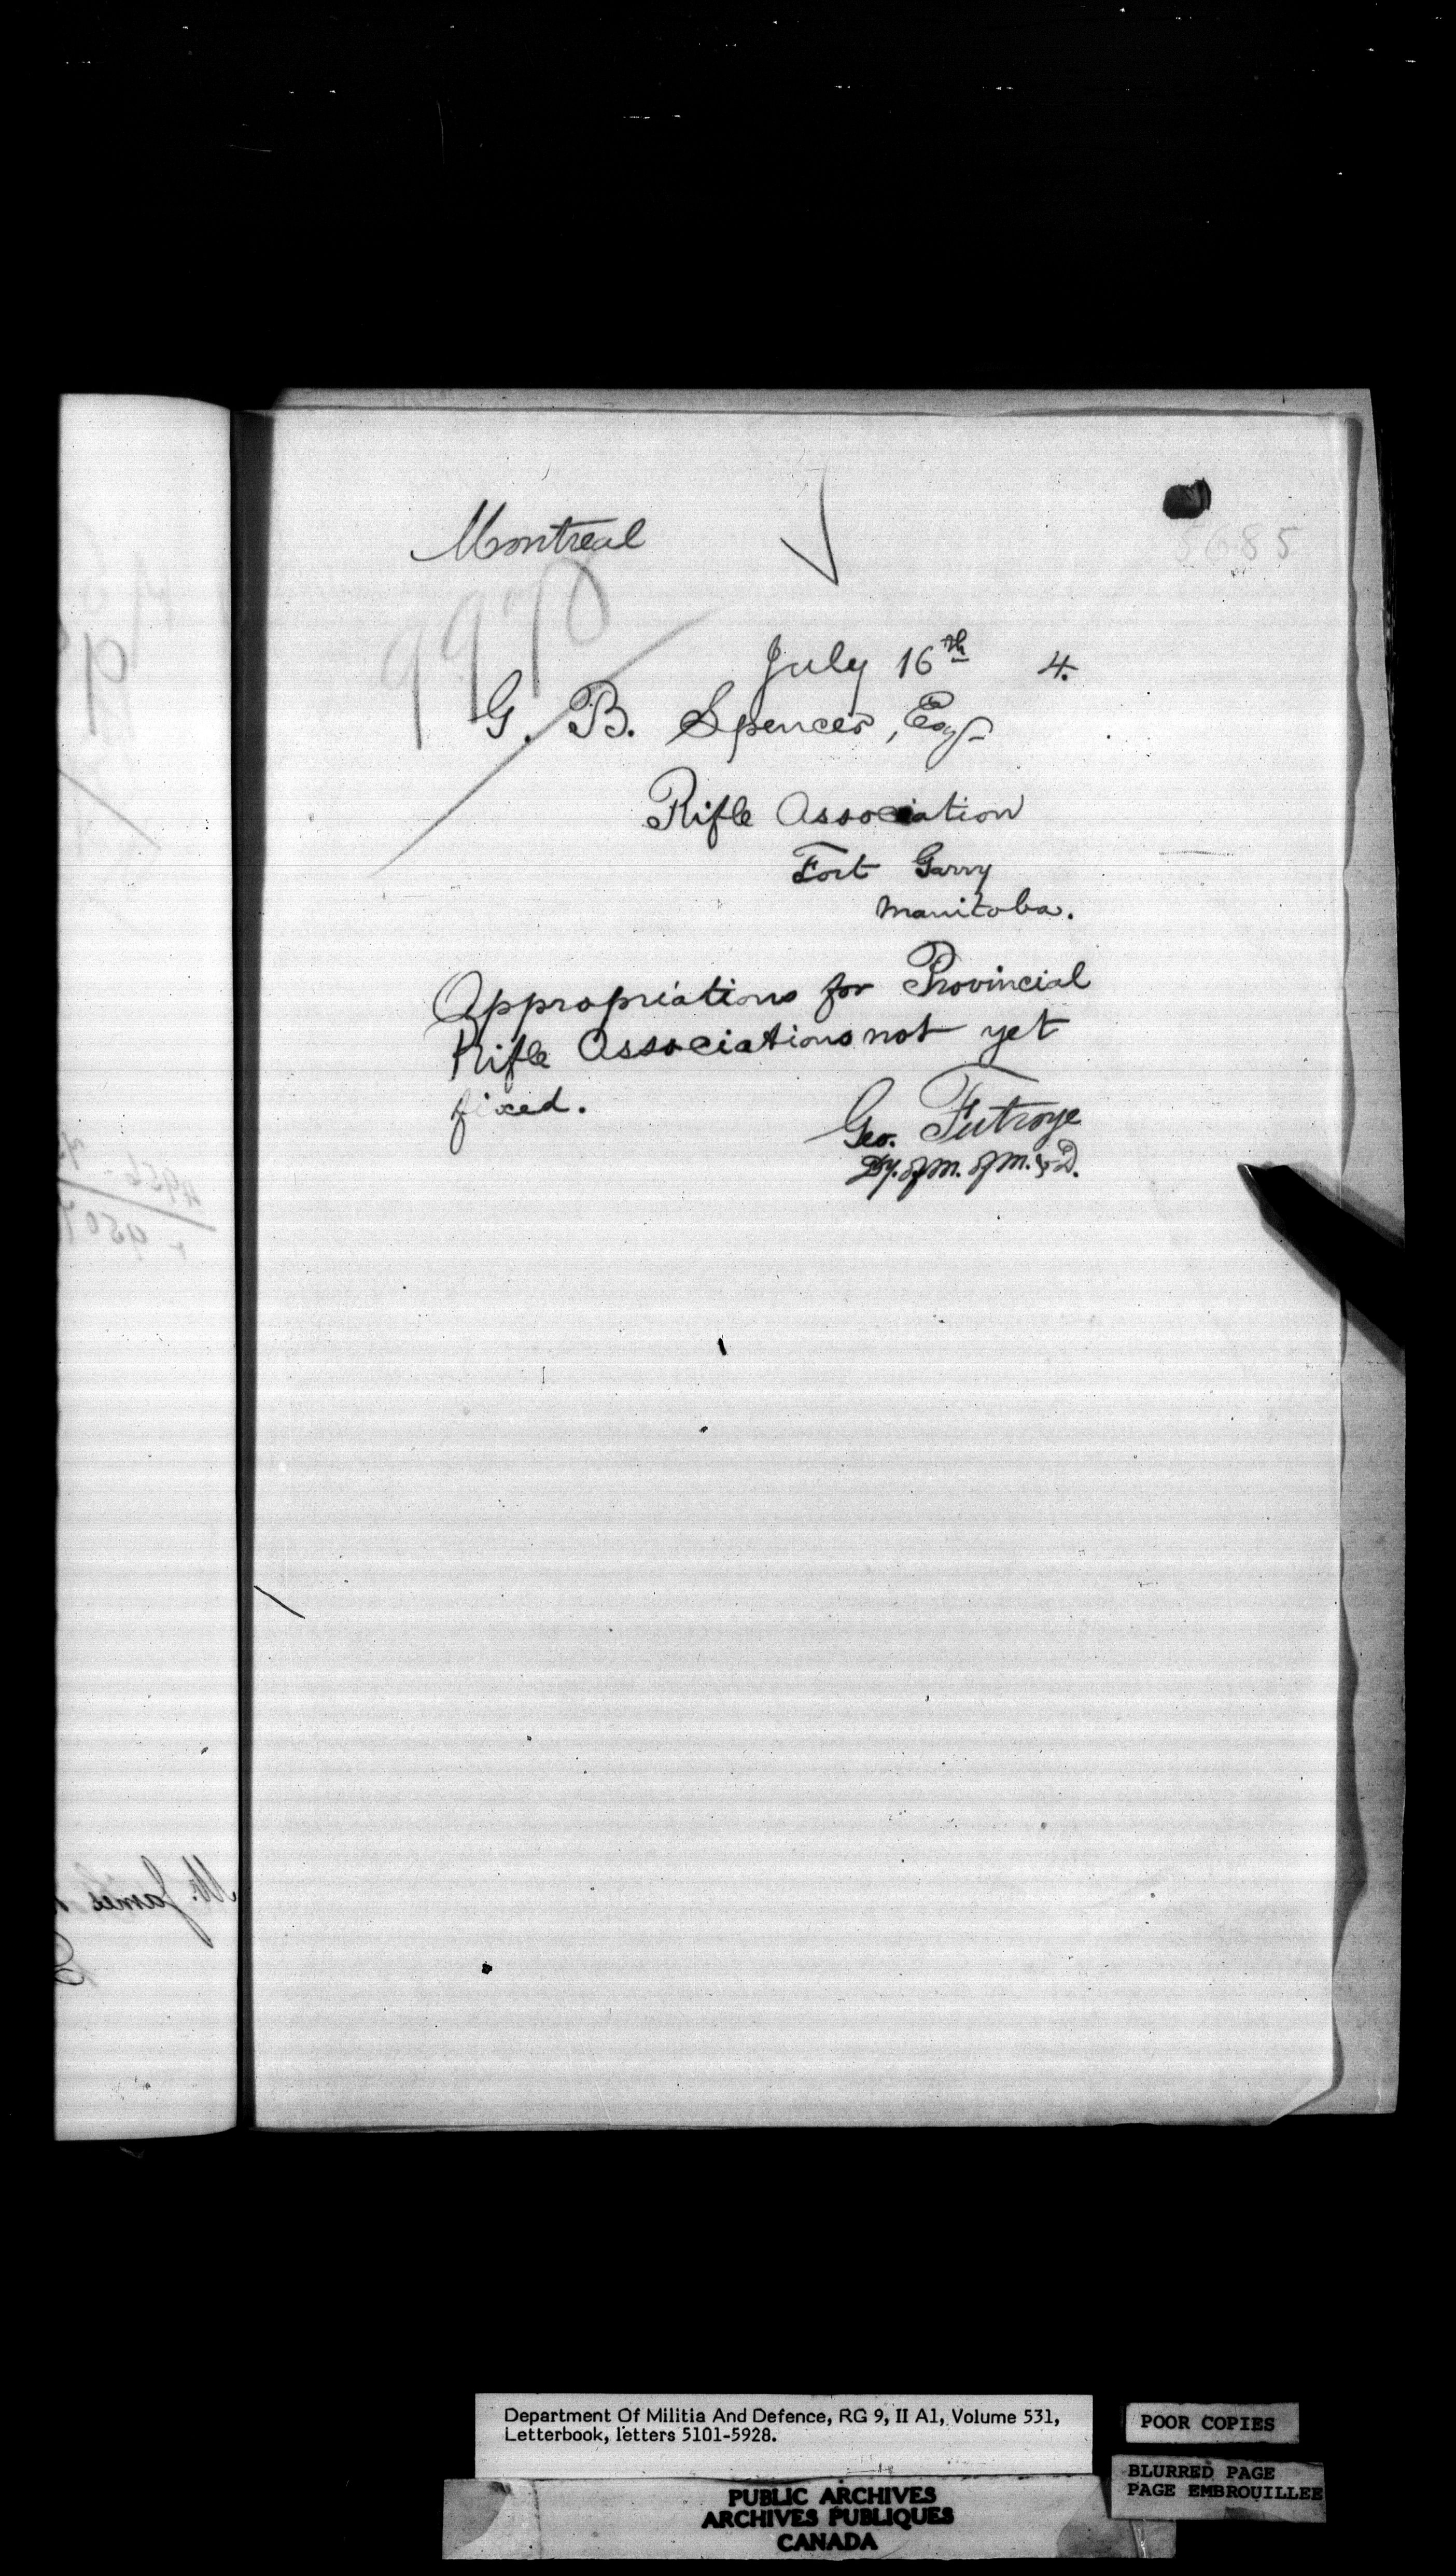 Montreal
5685
9970
July 16th 4.
G. B. Spencer, Esq
Rifle Association
Fort Garry
Manitoba.
Appropriations for Provincial
Rifle Associations not yet
fixed.
Geo. Futvoye
Dy. of M. of M. & D.
Mr. James
Department Of Militia And Defence, RG 9, II A1, Volume 531,
Letterbook, letters 5101-5928.
POOR COPIES
BLURRED PAGE
PAGE EMBROUILLEE
PUBLIC ARCHIVES
ARCHIVES PUBLIQUES
CANADA